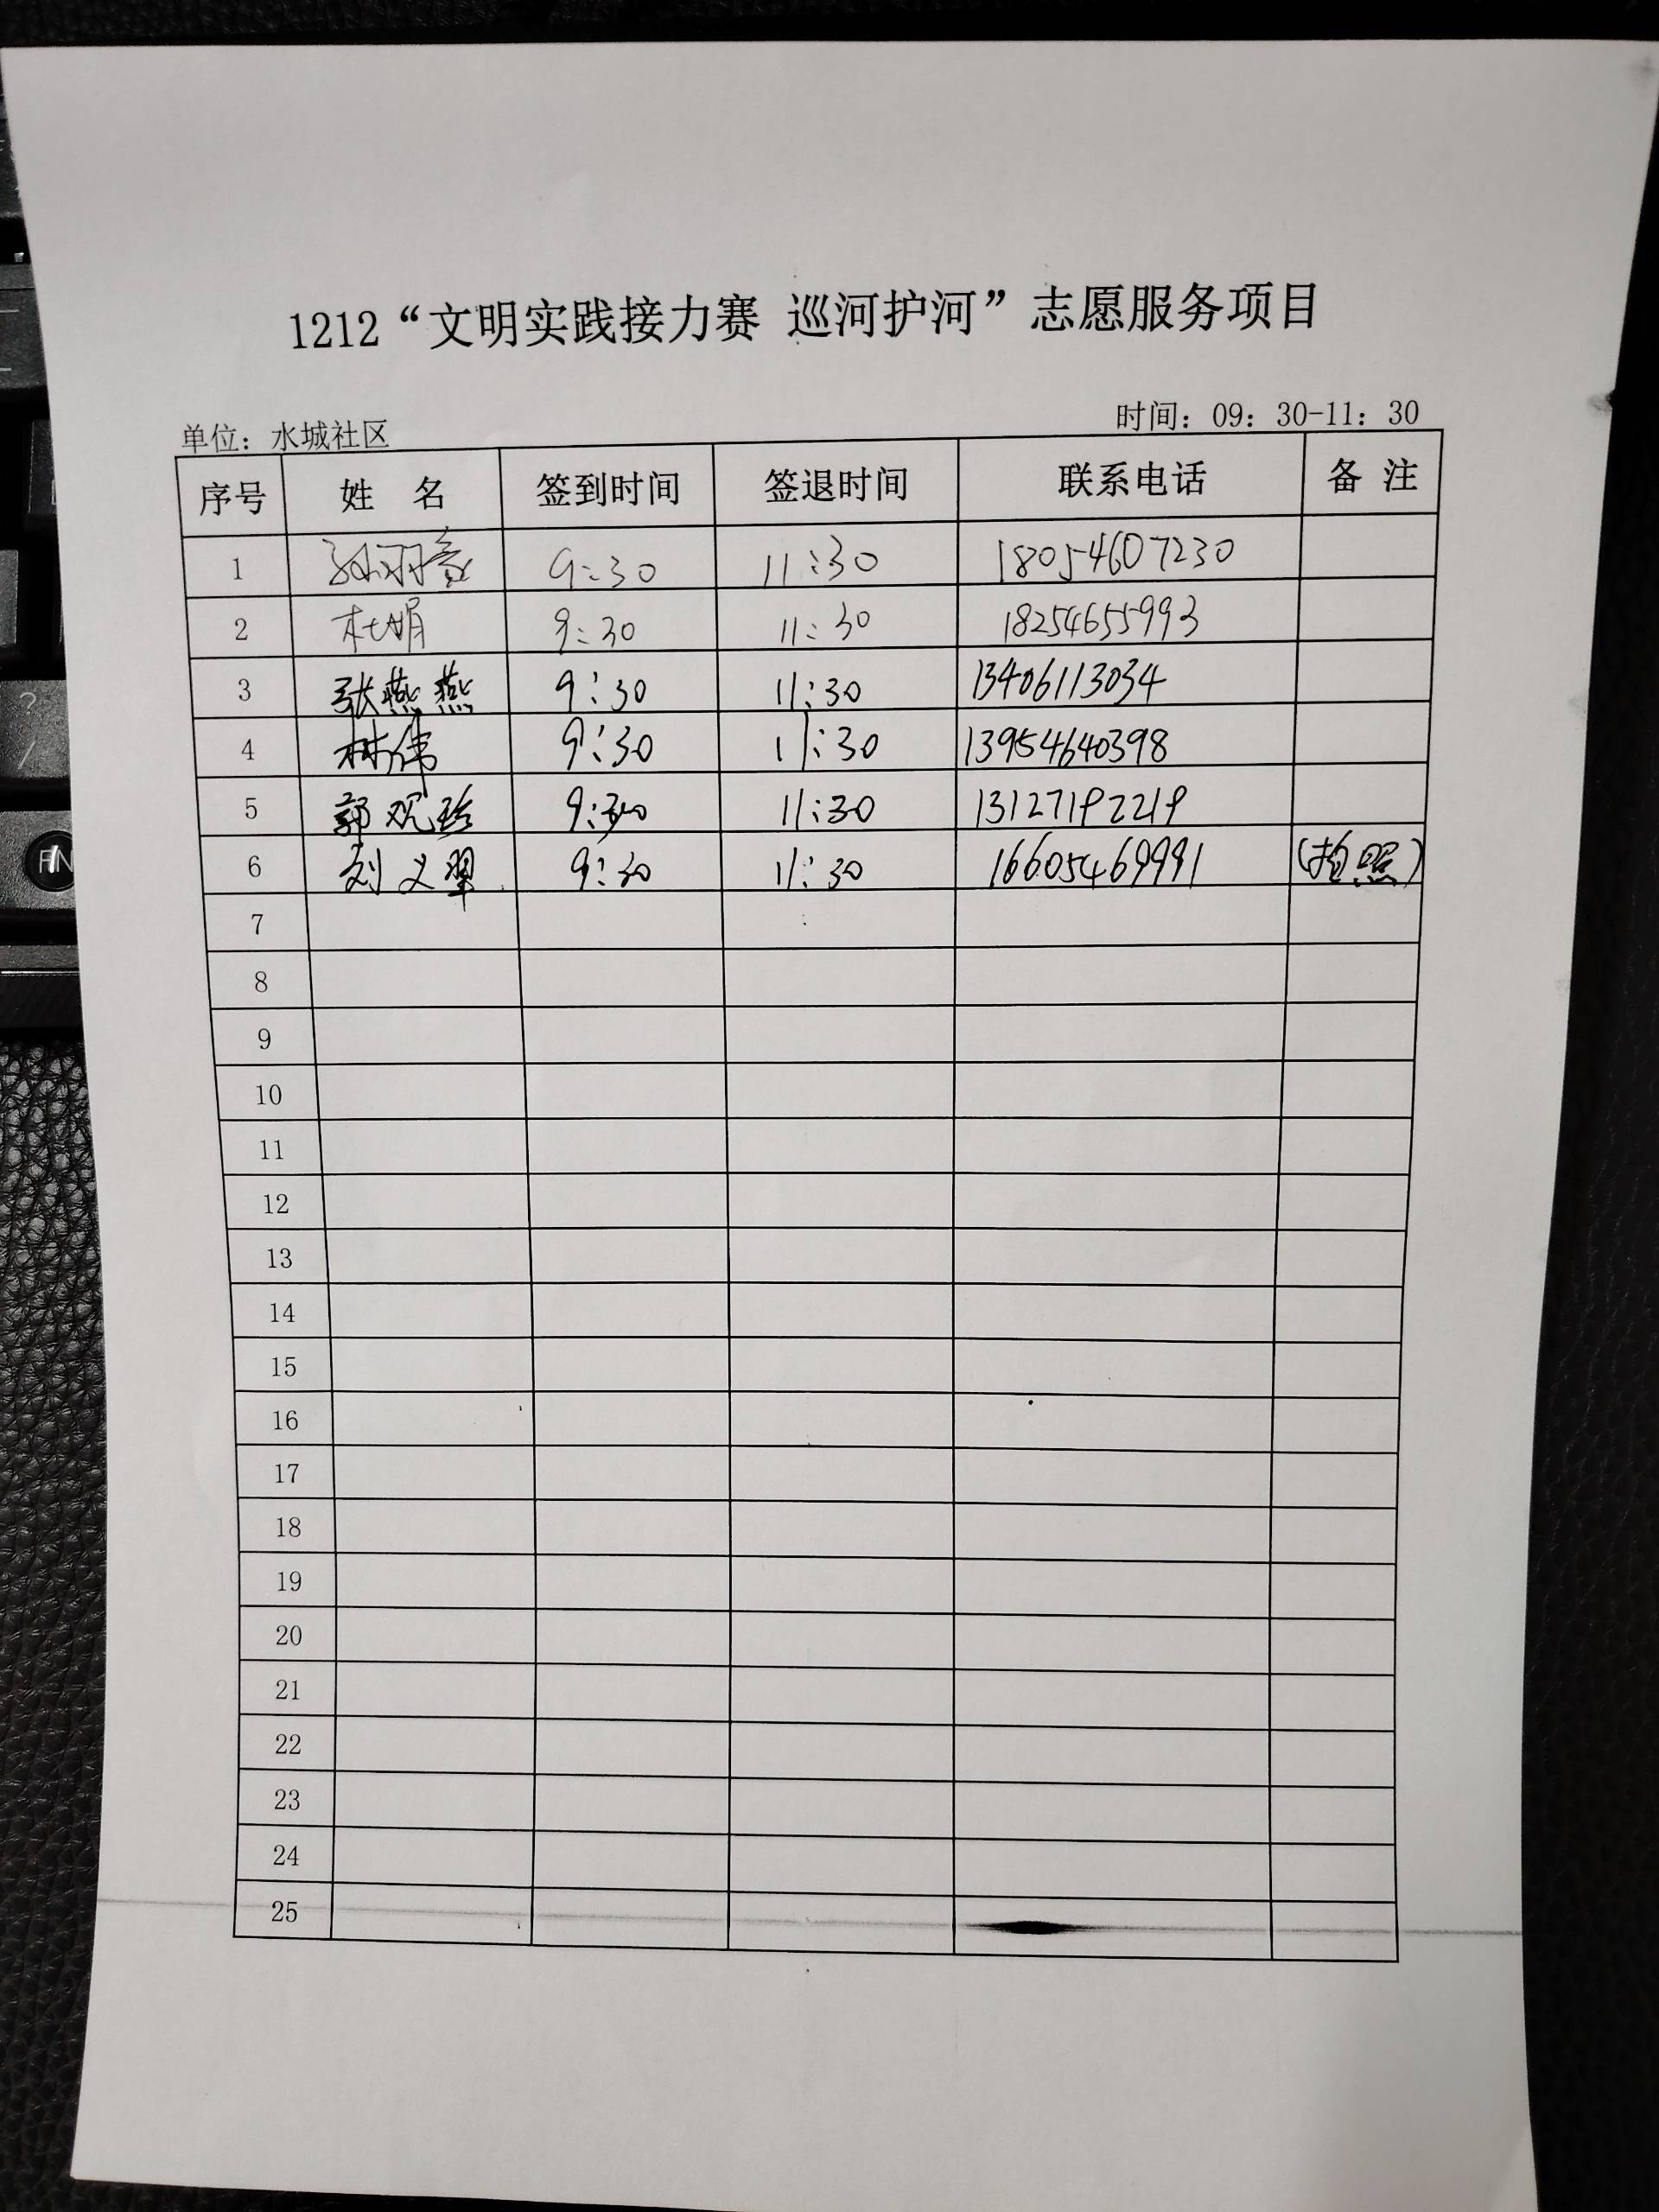 1212“文明实践接力赛 巡河护河”志愿服务项目
单位：水城社区 时间：09：30-11：30
序号 姓 名 签到时间 签退时间 联系电话 备 注
1 9:30 11:30 18054607230
2 杜娟 9:30 11:30 18254655993
3 张燕燕 9:30 11:30 13406113034
4 林伟 9:30 11:30 13954640398
5 郭观珍 9:30 11:30 13127192219
6 刘义翠 9:30 11:30 16605469991 (拍照)
7
8
9
10
11
12
13
14
15
16
17
18
19
20
21
22
23
24
25